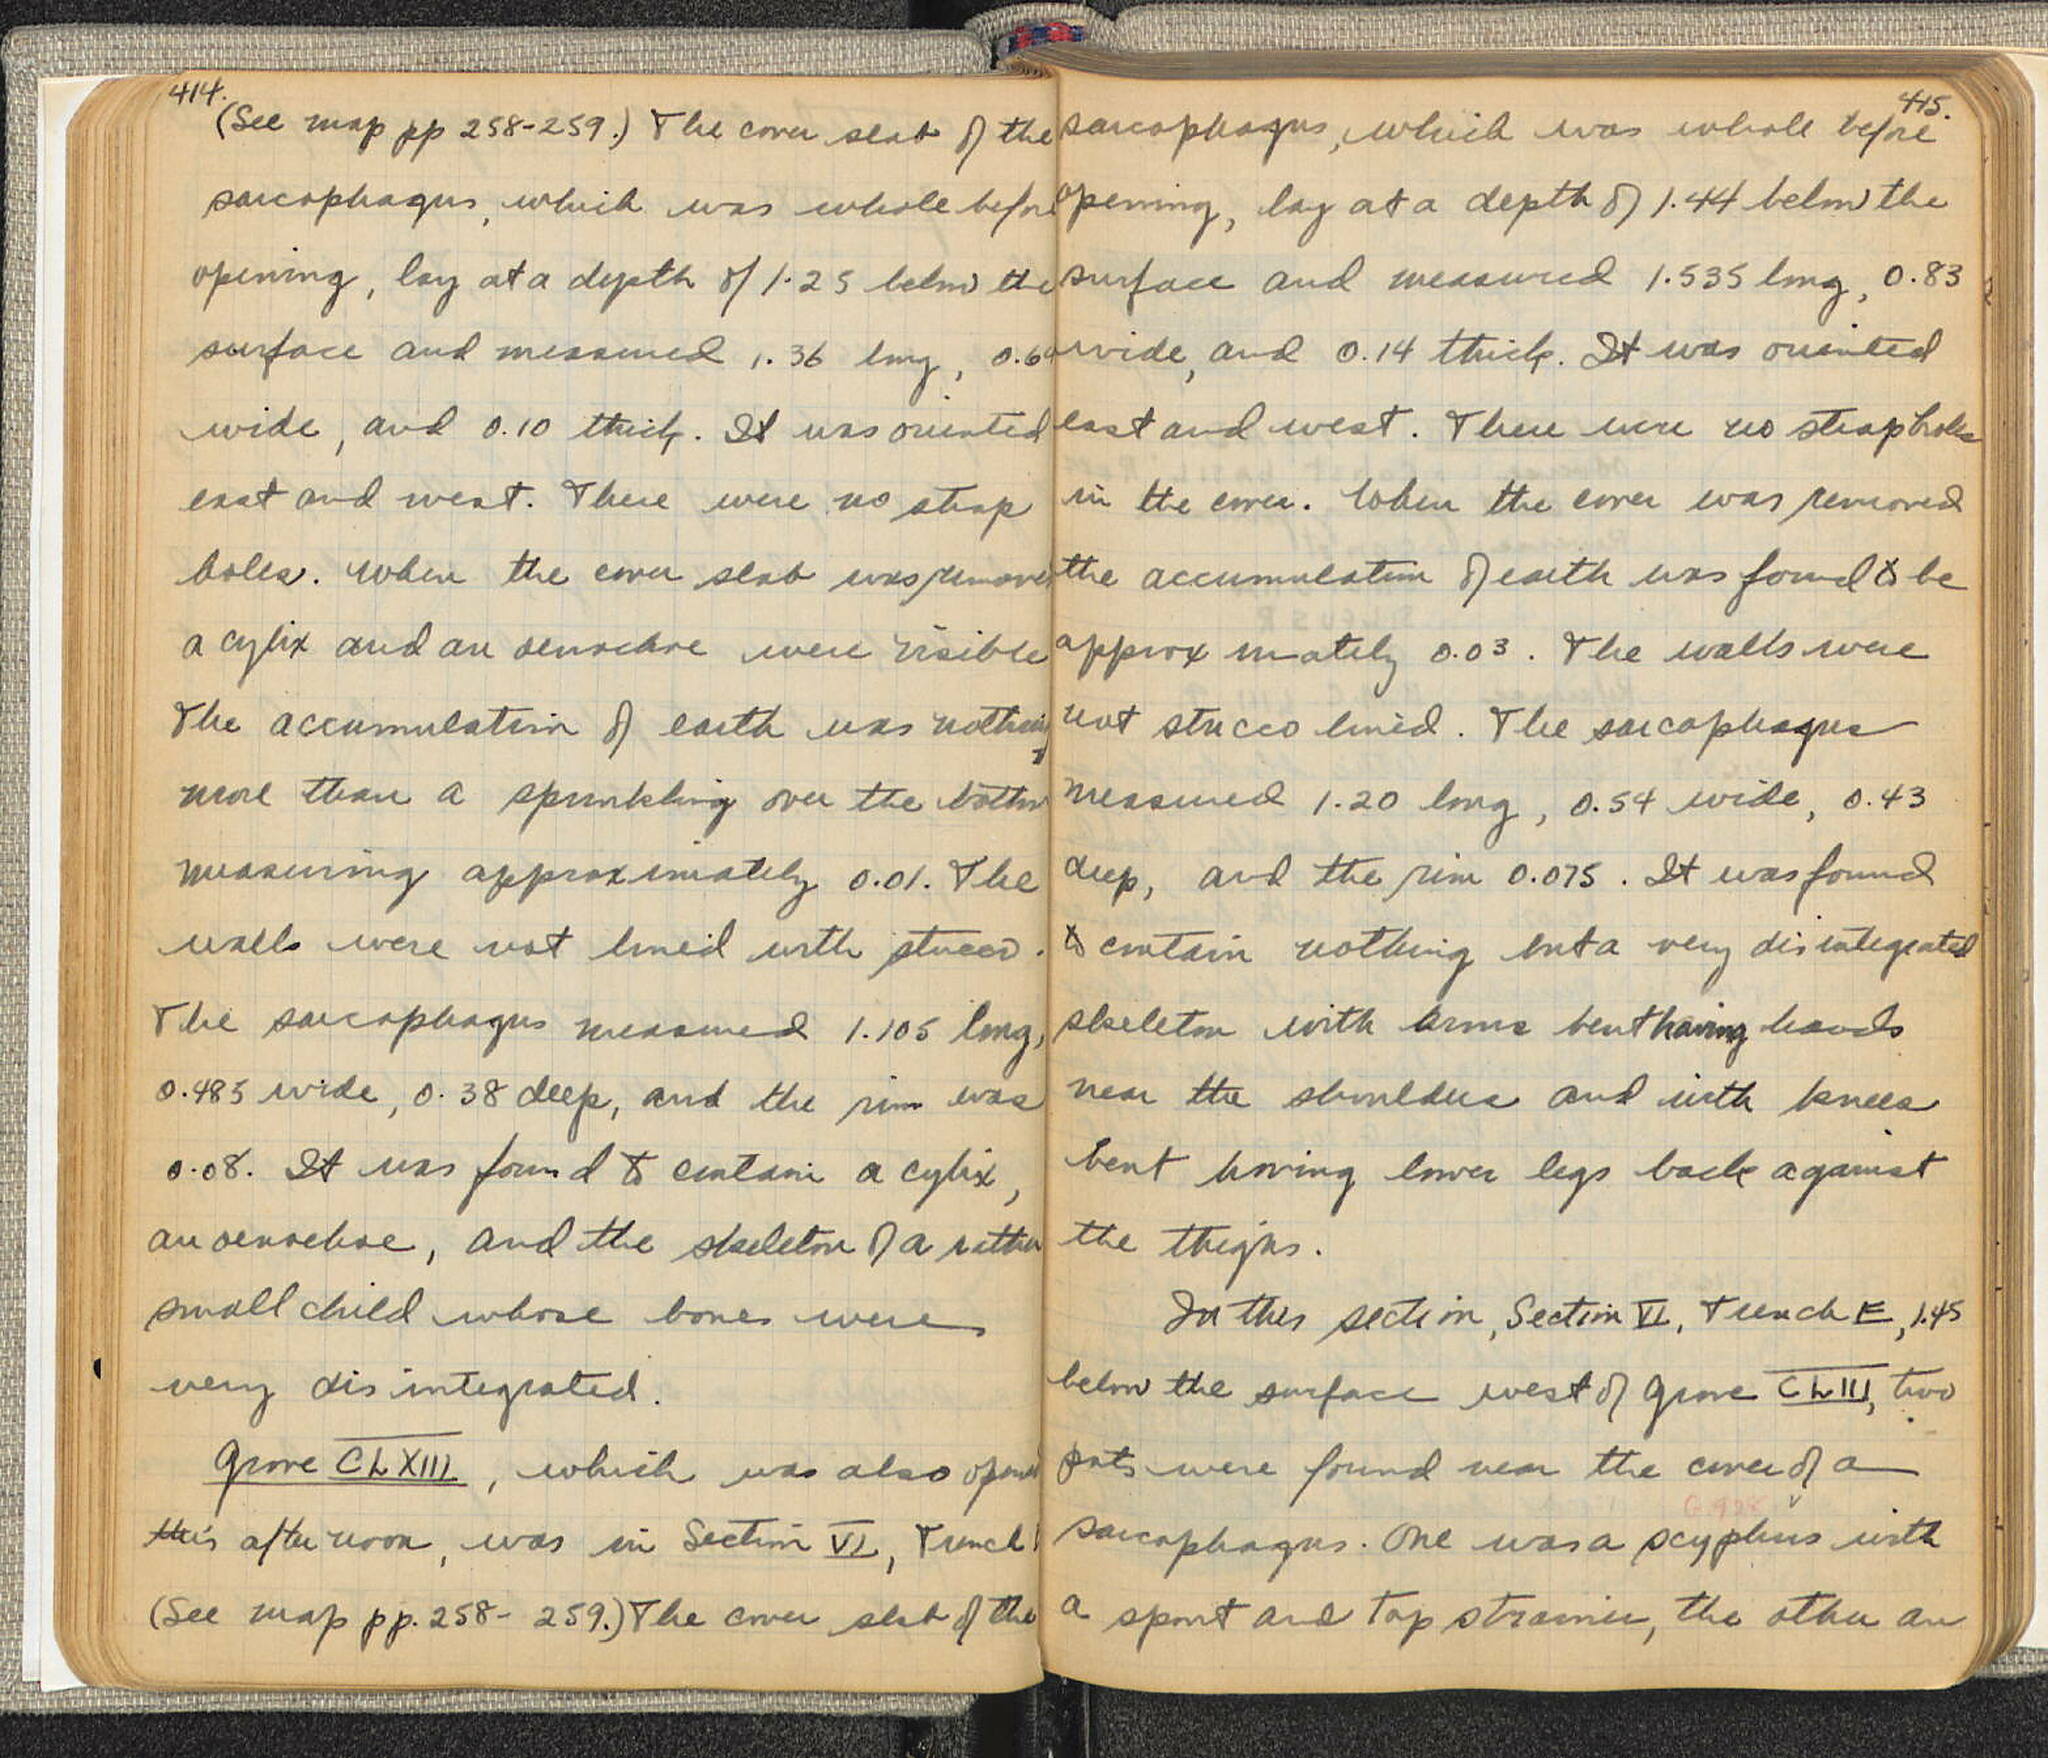 414.
(See map pp 258-259.) The cover slab of the
sarcophagus, which was whole before
opening, lay at a depth of 1.25 below the
surface and measured 1.36 long, 0.6
wide, and 0.10 thick. It was oriented
east and west. There were no strap
holes. When the cover slab was remove
a cylix and an oenochoe were visible
The accumulation of earth was nothing
more than a sprinkling over the bottom
measuring approximately 0.01. The
walls were not lined with stucco.
The sarcophagus measured 1.105 long,
0.485 wide, 0.38 deep, and the rim was
0.08. It was found to contain a cylix,
an oenochoe, and the skeleton of a rather
small child whose bones were
very disintegrated.
Grave CLXIII, which was also opened
this afternoon, was in Section VI, Trench
(See map pp. 258-259.) The cover slab of the
415.
sarcophagus, which was whole before
opening, lay at a depth of 1.44 below the
surface and measured 1.535 long, 0.83
wide, and 0.14 thick. It was oriented
east and west. There were no strap holes
in the cover. When the cover was removed
the accumulation of earth was found to be
approximately 0.03. The walls were
not stucco lined. The sarcophagus
measured 1.20 long, 0.54 wide, 0.43
deep, and the rim 0.075. It was found
to contain nothing but a very disintegrated
skeleton with arms bent having hands
near the shoulders and with knees
bent having lower legs back against
the thighs.
In this section, Section VI, Trench E, 1.45
below the surface west of Grave CLIII, two
pots were found near the cover of a
sarcophagus. One was a scyphus with
a spout and top strainer, the other an